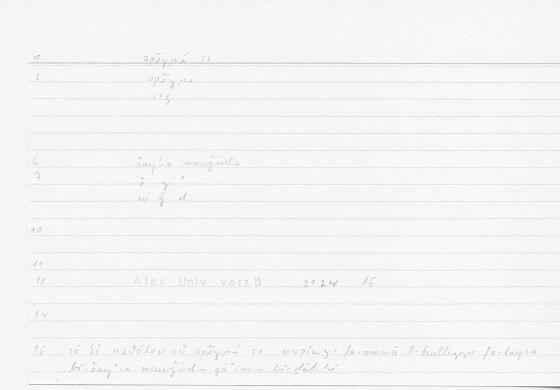 1 πρᾶγμά τι
2 πρᾶγμα
6 šayʾin mawǧūdin
7 š y ʾ
w ǧ d
10
11
Alex Univ vers B 21.24 - 16
14
16 τὸ δὲ καθόλου οὐ πρᾶγμά τι κυρίως· fa-ammā l-kulliyyu fa-laysa
bi-šayʾin mawǧūdin qāʾimin bi-ḏātihi